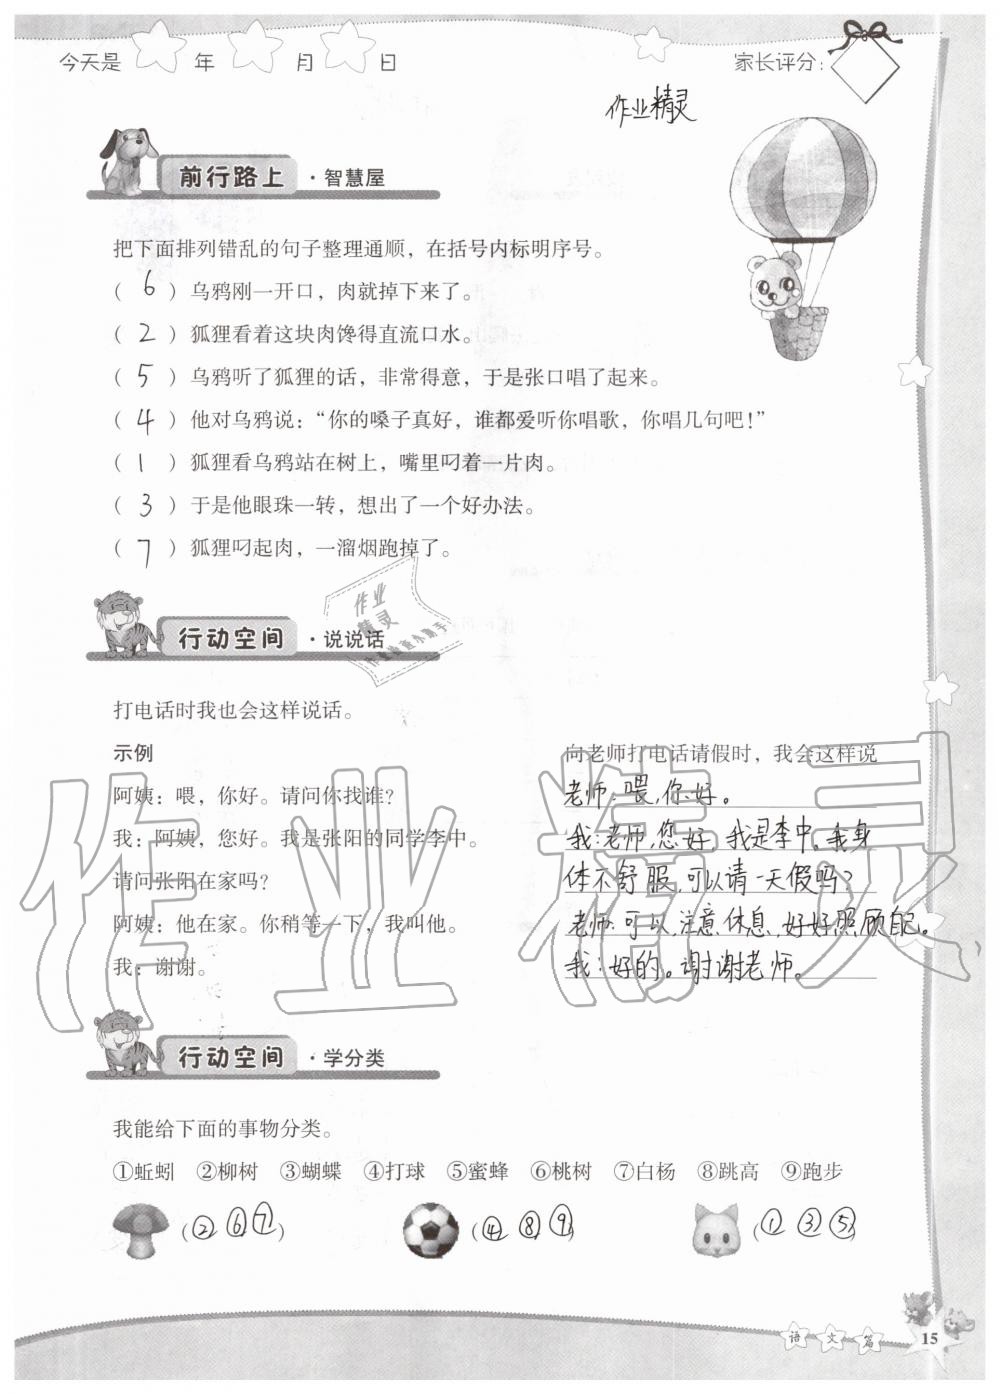 今天是 年 月 日 家长评分：
作业精灵
前行路上 ·智慧屋
把下面排列错乱的句子整理通顺，在括号内标明序号。
（ 6 ）乌鸦刚一开口，肉就掉下来了。
（ 2 ）狐狸看着这块肉馋得直流口水。
（ 5 ）乌鸦听了狐狸的话，非常得意，于是张口唱了起来。
（ 4 ）他对乌鸦说：“你的嗓子真好，谁都爱听你唱歌，你唱几句吧！”
（ 1 ）狐狸看乌鸦站在树上，嘴里叼着一片肉。
（ 3 ）于是他眼珠一转，想出了一个好办法。
（ 7 ）狐狸叼起肉，一溜烟跑掉了。
作业
精灵
行动空间 ·说说话
打电话时我也会这样说话。
示例
阿姨：喂，你好。请问你找谁？
我：阿姨，您好。我是张阳的同学李中。
请问张阳在家吗？
阿姨：他在家。你稍等一下，我叫他。
我：谢谢。
向老师打电话请假时，我会这样说
老师：喂，你好。
我：老师，您好，我是李中，我身
体不舒服，可以请一天假吗？
老师：可以，注意休息，好好照顾自己。
我：好的。谢谢老师。
作业精灵
行动空间 ·学分类
我能给下面的事物分类。
①蚯蚓 ②柳树 ③蝴蝶 ④打球 ⑤蜜蜂 ⑥桃树 ⑦白杨 ⑧跳高 ⑨跑步
（② ⑥ ⑦） （④ ⑧ ⑨） （① ③ ⑤）
语文篇 15